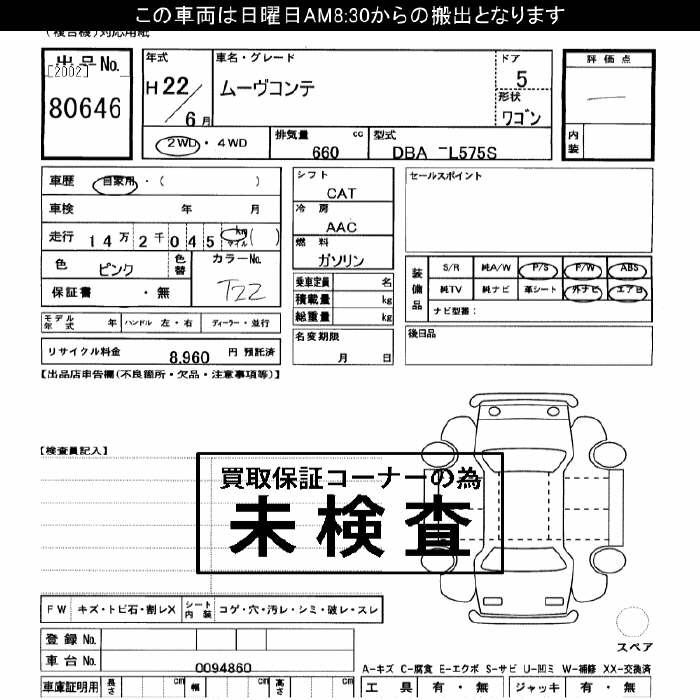 この車両は日曜日AM8:30からの搬出となります
(複合機)対応用紙
出品No.
[2002]
80646
年式
H 22/6月
車名・グレード
ムーヴコンテ
ドア
5
形状
ワゴン
評価点
内装
2WD・4WD
排気量 cc
660
型式
DBA -L575S
車歴 自家用・( )
車検 年 月
走行 14万2千045 km マイル ( )
色 ピンク
色替
カラーNo.
T22
保証書 ・無
シフト
CAT
冷房
AAC
燃料
ガソリン
乗車定員 名
積載量 kg
総重量 kg
セールスポイント
装備品
S/R 純A/W P/S P/W ABS
純TV 純ナビ 革シート 外ナビ エアB
ナビ型番:
モデル年式 年 ハンドル 左・右 ディーラー・並行
名変期限
月 日
後日品
リサイクル料金 8,960 円 預託済
【出品店申告欄(不良箇所・欠品・注意事項等)】
【検査員記入】
買取保証コーナーの為
未検査
FW キズ・トビ石・割レX シート内装 コゲ・穴・汚レ・シミ・破レ・スレ
登録No.
車台No. 0094860
スペア
A-キズ C-腐食 E-エクボ S-サビ U-凹ミ W-補修 XX-交換済
車庫証明用 長さ cm 幅 cm 高さ cm
工具 有・無 ジャッキ 有・無